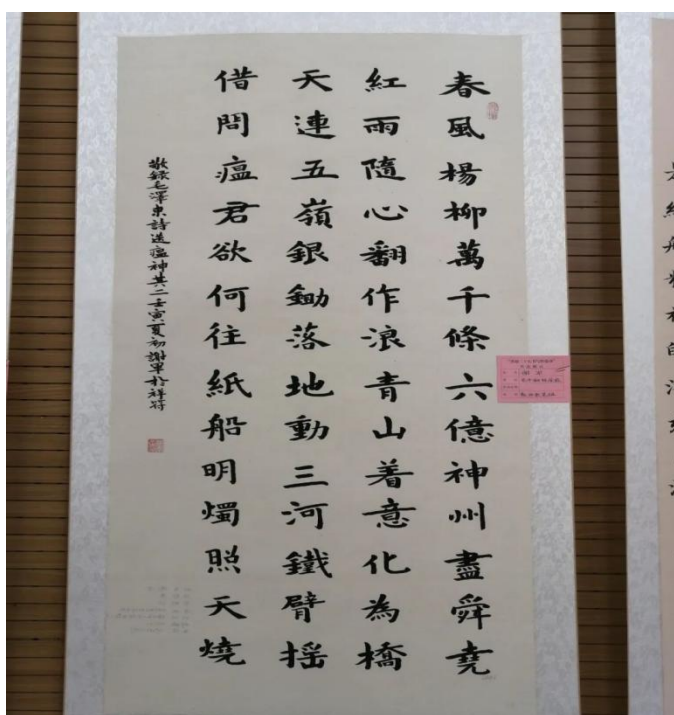 春風楊柳萬千條六億神州盡舜堯
紅雨隨心翻作浪青山着意化為橋
天連五嶺銀鋤落地動三河鐵臂搖
借問瘟君欲何往紙船明燭照天燒
敬録毛澤東詩送瘟神其二壬寅夏初謝軍於祥符